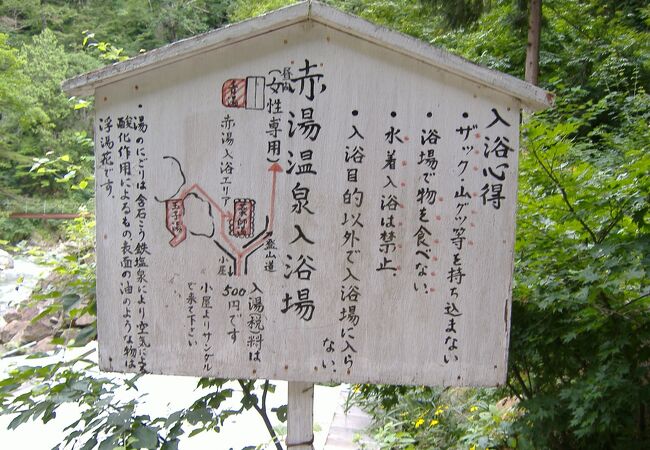 入浴心得
・ザック・山グツ等を持ち込まない
・浴場で物を食べない。
・水着入浴は禁止
・入浴目的以外で入浴場に入らない。
赤湯温泉入浴場
(女性専用)
青湯
赤湯入浴エリア
薬師湯
玉子湯
登山道
小屋
入湯(税)料は
500円です
小屋よりサンダル
で来て下さい
・湯のにごりは含石こう鉄塩泉により空気による
酸化作用によるもの表面の油のような物は
浮湯花です。